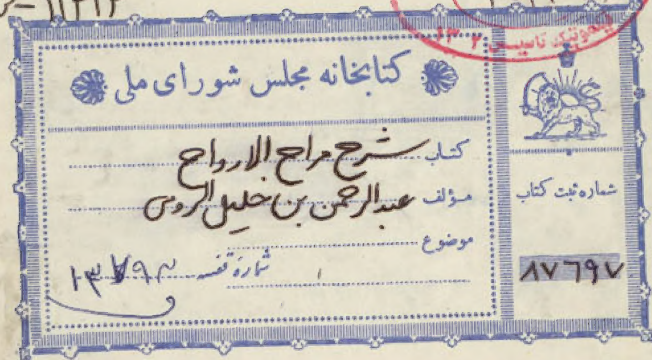 کتابخانه مجلس شورای ملی
کتاب شرح مراح الارواح
مؤلف عبدالرحمن بن خلیل الرومی
موضوع
شماره قفسه ۱۳۷۹۳
شماره ثبت کتاب
۸۷۶۹۷